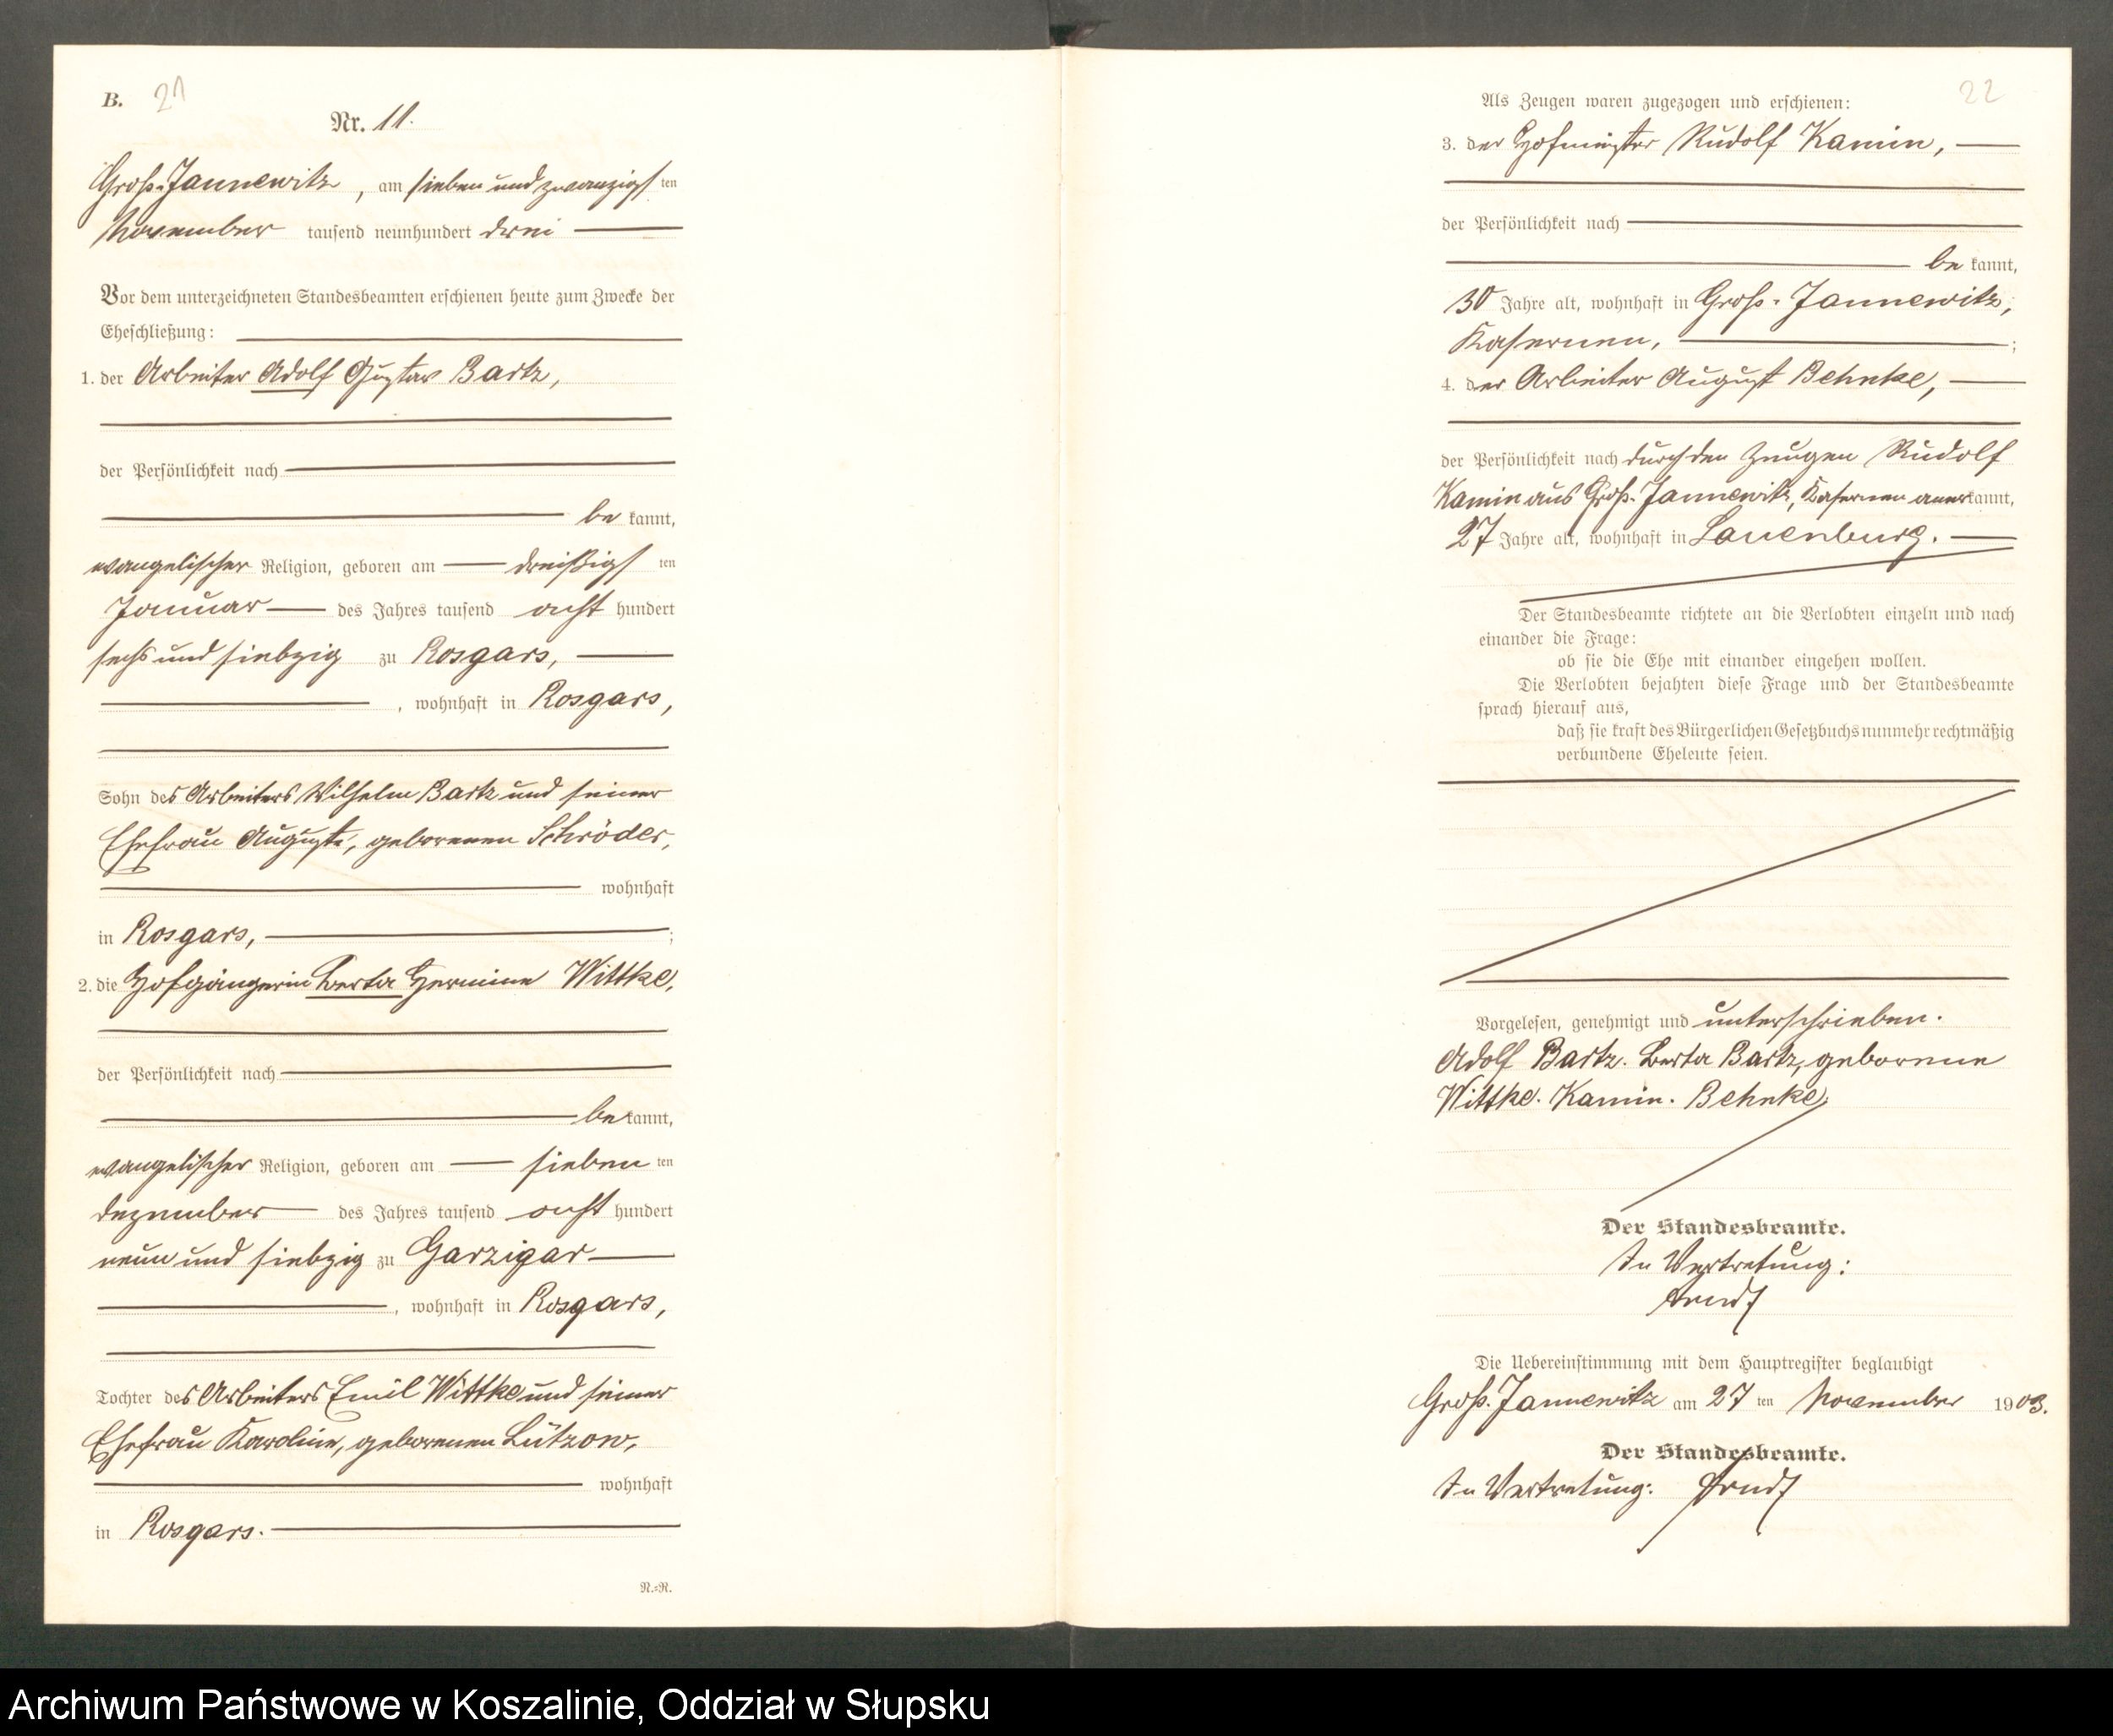 B. 21
Nr. 11.
Groß-Jannewitz, am sieben und zwanzigsten
November tausend neunhundert drei
Vor dem unterzeichneten Standesbeamten erschienen heute zum Zwecke der
Eheschließung:
1. der Arbeiter Adolf Gustav Bartz,
der Persönlichkeit nach
be kannt,
evangelischer Religion, geboren am dreißigsten
Januar des Jahres tausend acht hundert
sechs und siebzig zu Rosgars,
, wohnhaft in Rosgars,
Sohn des Arbeiters Wilhelm Bartz und seiner
Ehefrau Auguste, geborenen Schröder,
wohnhaft
in Rosgars, ;
2. die Hofgängerin Berta Hermine Wittke,
der Persönlichkeit nach
be kannt,
evangelischer Religion, geboren am siebenten
Dezember des Jahres tausend acht hundert
neun und siebzig zu Garzigar
, wohnhaft in Rosgars,
Tochter des Arbeiters Emil Wittke und seiner
Ehefrau Karoline, geborenen Lützow,
wohnhaft
in Rosgars.
N.=R.
22
Als Zeugen waren zugezogen und erschienen:
3. der Hofmeister Rudolf Kamin,
der Persönlichkeit nach
be kannt,
30 Jahre alt, wohnhaft in Groß-Jannewitz,
Kasernen, ;
4. der Arbeiter August Behnke,
der Persönlichkeit nach durch den Zeugen Rudolf
Kamin aus Groß-Jannewitz, Kasernen anerkannt,
27 Jahre alt, wohnhaft in Lauenburg.
Der Standesbeamte richtete an die Verlobten einzeln und nach
einander die Frage:
ob sie die Ehe mit einander eingehen wollen.
Die Verlobten bejahten diese Frage und der Standesbeamte
sprach hierauf aus,
daß sie kraft des Bürgerlichen Gesetzbuchs nunmehr rechtmäßig
verbundene Eheleute seien.
Vorgelesen, genehmigt und unterschrieben.
Adolf Bartz. Berta Bartz, geborene
Wittke. Kamin. Behnke.
Der Standesbeamte.
In Vertretung:
Arndt
Die Uebereinstimmung mit dem Hauptregister beglaubigt
Groß-Jannewitz am 27 ten November 1903.
Der Standesbeamte.
In Vertretung: Arndt
Archiwum Państwowe w Koszalinie, Oddział w Słupsku